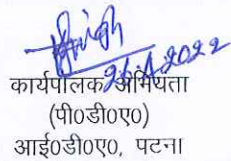 26.4.2022
कार्यपालक अभियंता
(पी०डी०ए०)
आई०डी०ए०, पटना